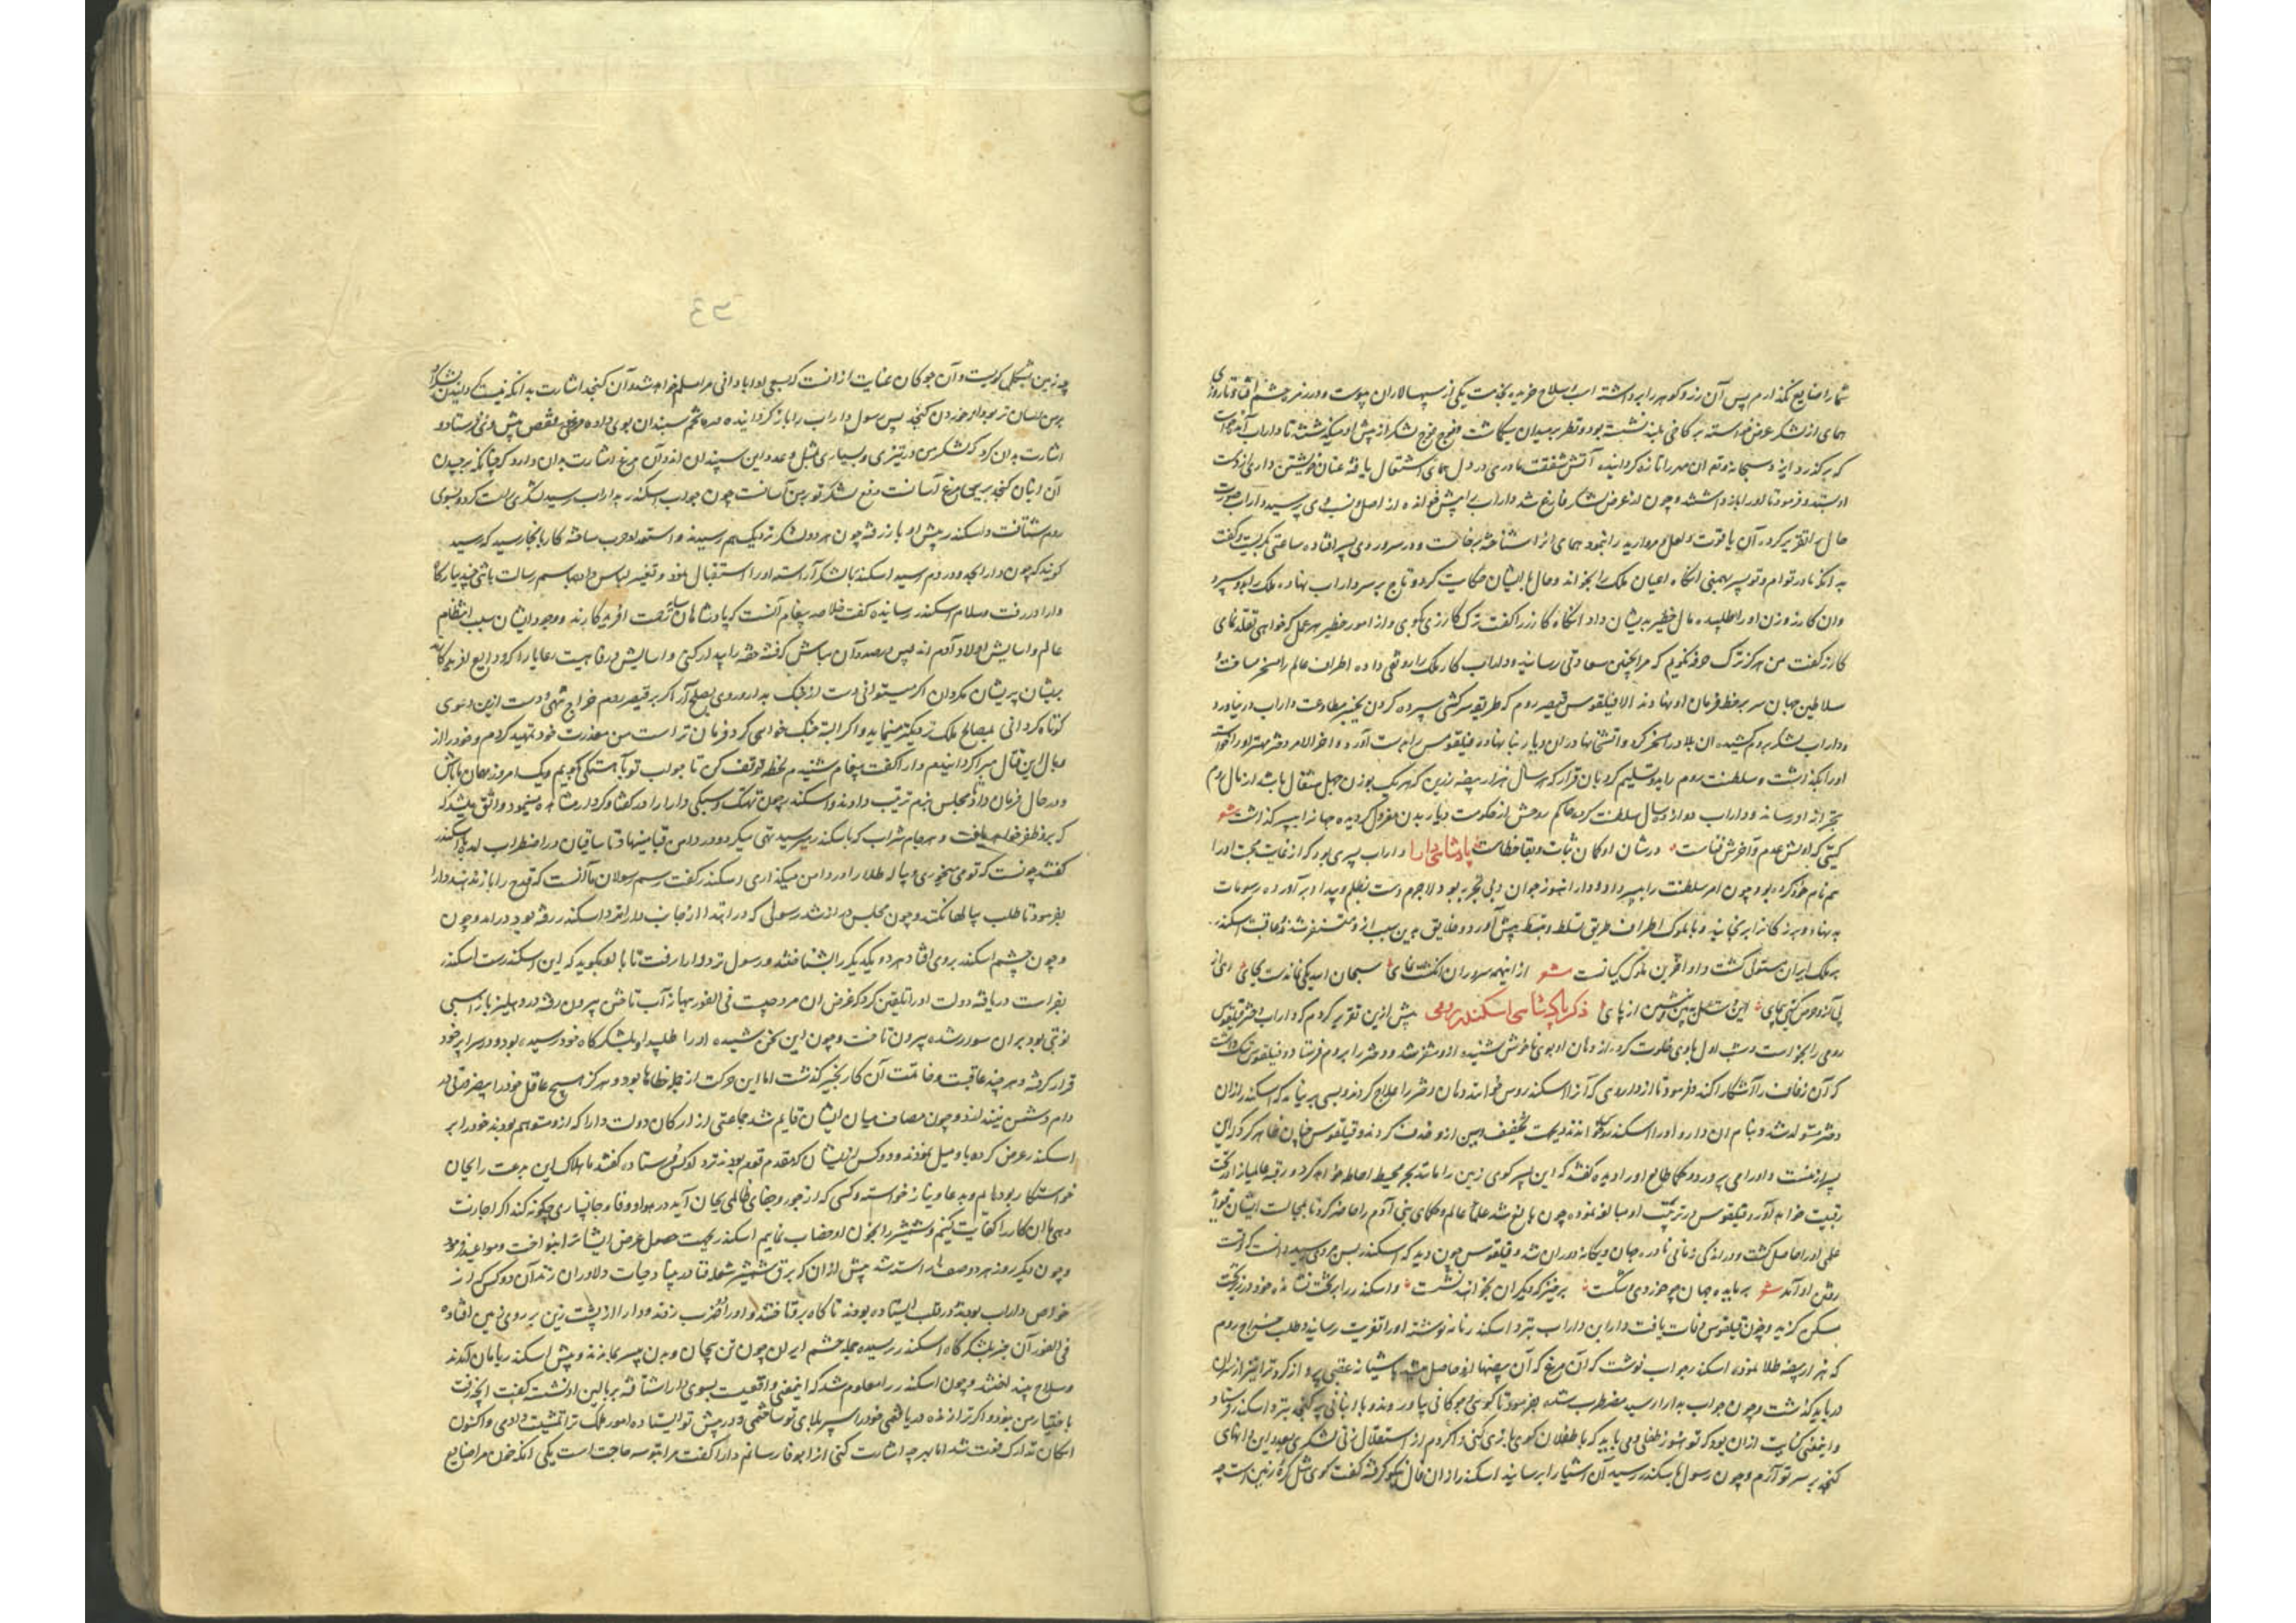 شما را ضایع نگذارم پس آن زر و گوهر را برداشته اسب و سلاح خریده بخدمت یکی از سپهسالاران پیوست و در روز
همای از لشکر عرض خواسته بر کاخی بلند نشسته بود و نظر بر میدان میگماشت و فوج فوج لشکر از پیش او میگذشتند تا داراب
که بر گذرد ایزد سبحانه و تعالی مهر را تازه گردانیده آتش شفقت مادری در دل همای اشتعال یافته عنان خویشتن داری از دست
او بستد و فرمود تا او را باز داشتند و چون از عرض لشکر فارغ شد داراب را پیش خوانده از اصل و نسب وی پرسید داراب صورت
حال را تقریر کرد و آن یاقوت و لعل و مروارید را بنمود همای آنرا شناخته برخاست و در سر و روی پسر افتاده ساعتی بگریست و گفت
بدانکه مادر تو ام و تو پسر بهمنی آنگاه اعیان ملک را بخواند و حال با ایشان حکایت کرد و تاج بر سر داراب نهاد و ملک بدو سپرد
و آن گازر و زن او را طلبیده مال خطیر بدیشان داد آنگاه گازر را گفت ترک گازری بگوی و از امور خطیر هر عمل که خواهی تقلد نمای
گازر گفت من هرگز ترک حرفه نگویم که مرا بچنین سعادتی رسانید و داراب کار ملک را رونقی داده اطراف عالم را مسخر ساخت و
سلاطین جهان سر بر خط فرمان او نهادند الا فیلقوس قیصر روم که طریق سرکشی سپرده گردن بچنبر مطاوعت داراب در نیاورد
و داراب لشکر بروم کشیده آن بلاد را مسخر کرد و آتشها در آن دیار بنا نهاد و فیلقوس را بدست آورد و آخر الامر دختر مهتر او را خواسته
او را بگذاشت و سلطنت روم را بدو تسلیم کرد بدان قرار که هر سال هزار بیضه زرین که هر یک بوزن چهل مثقال باشد از مال روم
بخزانه او رساند و داراب دوازده سال سلطنت کرده حاکم روحش از حکومت دیار بدن معزول گردیده جهانرا بپسر گذاشت شعر
گیتی که اولش عدم و آخرش فناست در شان او گمان ثبات و بقا خطاست پادشاهی دارا داراب پسری بود که از غایت محبت او را
هم نام خود کرده بود چون امر سلطنت را بپسر داد و دارا هنوز جوان و بی تجربه بود لاجرم دست بظلم و بیداد برآورده رسومات
بد نهاد و بزرگانرا برنجانید و با ملوک اطراف طریق تسلط و تبسط پیش آورد و خلایق بدین سبب از و متنفر شدند و عاقبت اسکندر
بملک ایران مستولی گشت و او آخرین ملوک کیانست شعر از اینهمه سروران انگشت نمای سبحان الله یکی نماندست بجای
ذکر پادشاهی اسکندر رومی پیش ازین تقریر کردم که داراب دختر فیلقوس
رومی را بخواست و شب اول با وی خلوت کرد از دهان او بوی ناخوش شنیده از و متنفر شد و دختر را بروم فرستاد و فیلقوس
که آن زفاف را آشکارا کند و فرمود تا از داروی که آنرا اسکندروس خوانند دهان دختر را علاج کردند و بسی بر نیامد که اسکندر از آن
دختر متولد شد و بنام آن دارو او را اسکندروس خواندند بجهت تخفیف سین از و حذف کردند و فیلقوس چنان ظاهر کرد که این
پسر از منست و او را می پرورد و حکما طالع او را دیده گفتند که این پسر کوی زمین را مانند بحر محیط احاطه خواهد کرد و رقبه عالمیان را در تحت
رقیت خواهد آورد و فیلقوس در تربیت او مبالغه نموده چون بالغ شد علماء عالم و حکمای بنی آدم را حاضر کرد تا بمجالست ایشان
علمی او را حاصل گشت و در اندک زمانی نادره جهان و یگانه دوران شد و فیلقوس چون دید که اسکندر بسن مردی رسید دانست که وقت
رفتن او آمد شعر بر مایده جهان چو خوردی شکست برخیز که دیگران بخواهند نشست و اسکندر را بر تخت نشانده خود در زیر تخت
مسکن گزید و چون فیلقوس وفات یافت دارا بن داراب بنزد اسکندر نامه نوشته او را تعزیت رسانید و طلب خراج روم
که هزار بیضه طلا نموده اسکندر جواب نوشت که آن مرغ که آن بیضها ازو حاصل میشد باشیانه عقبی پرواز کرد
دریا بگذشت و چون جواب بدارا رسید مضطرب شده بفرمود تا گوی و چوگانی بیاورند و با انبانی پر کنجد بنزد اسکندر فرستاد
و این معنی کنایت از آن بود که تو هنوز طفلی و می باید که با طفلان گوی بازی کنی و اگر دم از استقلال زنی لشکری بعدد این دانهای
کنجد بر سر تو آرم و چون رسول باسکندر رسید آن اشیا را برسانید اسکندر از آن فال نیکو گرفته گفت گوی شکل کره زمین است
چه زمین بشکل کویست و آن چوگان عنایت از آنست که بسعی او آبادانی مرا مسلم خواهد شد و آن کنجد اشارت بدانکه
بر من آسان تر بود از خوردن کنجد پس رسول داراب را باز گردانیده و صره تخم سپندان بوی داده و مرغی در قفس پیش وی فرستاد و
اشارت بدان کرد که لشکر من در تیزی و بسیاری مثل و عدد این سپندان اند و آن مرغ اشارت بدان دارد که چنانکه برچیدن
آن انبان کنجد بر یک مرغ آسانست دفع لشکر تو بر من آسانست چون جواب اسکندر بداراب رسید لشکری راست کرد و بسوی
روم شتافت و اسکندر پیش او باز رفته چون هر دو لشکر نزدیک هم رسیدند و استعداد حرب ساخته کار بانجا رسید که رسید
گویند که چون دارا بحدود روم رسید اسکندر با لشکر آراسته او را استقبال نمود و تغییر لباس داده باسم رسالت با تنی چند ببارگاه
دارا در رفت و سلام اسکندر رسانیده گفت خلاصه پیغام آنست که پادشاهان سایه رحمت آفریدگارند و وجود ایشان سبب انتظام
عالم و آسایش اولاد آدم اند پس در صدد آن مباش که فتنه خفته را بیدار کنی و آسایش و رفاهیت رعایا را که ودایع آفریدگارند
بدیشان پریشان مگردان اگر میتوانی دست از جنگ بدار و روی بصلح آر اگر بر قیصر روم خراج نهی و دست ازین دعوی
کوتاه گردانی بمصالح ملک نزدیکتر مینماید و اگر البته جنگ خواهی کرد فرمان تراست من معذرت خود تمهید کردم و خود را از
وبال این قتال مبرا گردانیدم دارا گفت پیغام شنیدم لحظه توقف کن تا جواب تو بآهستگی گویم و یک امروز مهمان ما باش
و در حال فرمان داد تا مجلس بزم ترتیب دادند و اسکندر چون تهتک و سبکی دارا را در گفتار و کردار مشاهده مینمود واثق میشد
که برو ظفر خواهد یافت و هر جام شراب که باسکندر میرسید تهی میکرد و در دامن قبا مینهاد تا ساقیان در اضطراب آمدند اسکندر
گفتند چونست که تو می میخوری و پیاله طلا را در دامن میگذاری اسکندر گفت رسم رسولان ما آنست که قدح را باز ندهند دارا
بفرمود تا طلب پیالها نکنند و چون مجلس دراز شد رسولی که در ابتدا از جانب دارا نزد اسکندر رفته بود درآمد و چون
و چون چشم اسکندر بروی افتاد هر دو یکدیگر را بشناختند و رسول نزد دارا رفت تا با او بگوید که این اسکندرست اسکندر
بفراست دریافته دولت او را تلقین کرد که غرض آن مرد چیست فی الفور ببهانه آب تاختن بیرون رفته در دهلیز بارگاه اسبی
نوبتی بود بر آن سوار شده بیرون تاخت و چون این سخن شنیده او را طلبید او بلشکرگاه خود رسیده بود و در سراپرده خود
قرار گرفته و هر چند عاقبت و خاتمت آن کار بخیر گذشت اما این حرکت از جمله خطاها بود و هرگز هیچ عاقل خود را
دام دشمن نیندازد و چون مصاف میان ایشان قایم شد جماعتی از ارکان دولت دارا که ازو متوهم بودند خود را بر
اسکندر عرض کرده با او میل نمودند و دو کس از ایشان که مقدم قوم بودند نزد او کس فرستاده گفتند ما هلاک این بدعت را بجان
خواستگار بوده ایم و بدعا و نیاز خواسته و کسی که از جور و جفای ظالمی بجان آید در هواداری و فا و جانسپاری چگونه کند اگر اجازت
دهی ما این کار را کفایت کنیم و شمشیر را بخون او خضاب نماییم اسکندر بجهت حصول غرض ایشانرا بنواخت و مواعید فرمود
و چون دیگر روز هر دو صف راست شد پیش از آن که برق شمشیر شعله فنا در نهاد حیات دلاوران زند آن دو کس که از
خواص داراب بودند و در قلب ایستاده بودند ناگاه برو تاختند و او را ضرب زدند و دارا از پشت زین بر روی زمین افتاد
فی الفور آن خبر بلشکرگاه اسکندر رسیده جمله حشم ایران چون تن بیجان و بدن بیسر بماندند و پیش اسکندر بامان آمدند
و سلاح بینداختند و چون اسکندر را معلوم شد که اینمعنی واقعیست بسوی دارا شتافته بر بالین او نشست گفت آنچه رفت
باختیار من نبود و اگر ترا زنده دریافتمی خود را سپر بلای تو ساختمی و در پیش تو ایستاده امور ملک ترا تمشیت دادمی و اکنون
امکان تدارک فوت شد اما بهر چه اشارت کنی آنرا بوفا رسانم دارا گفت مرا بتو سه حاجت است یکی آنکه خون مرا ضایع